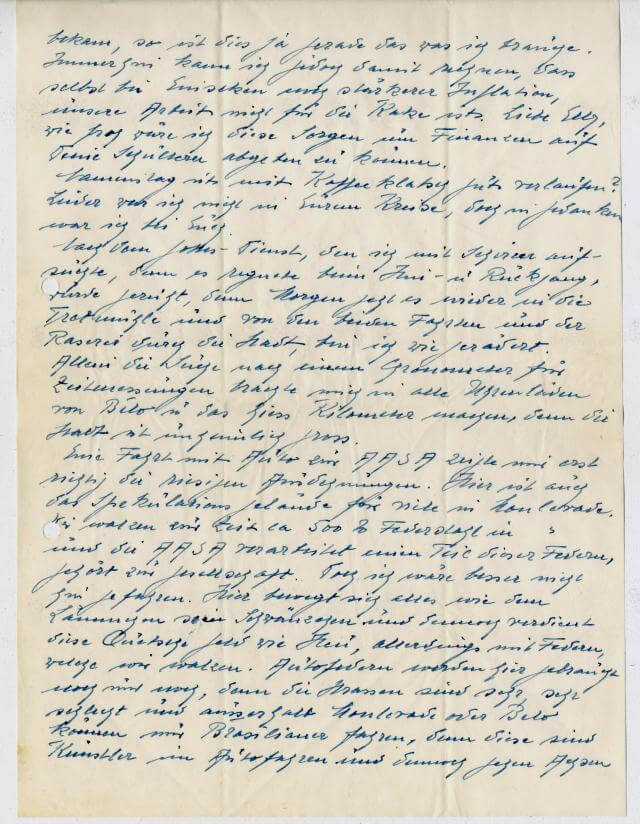 bekam, so ist dies ja gerade das was ich brauche.
Immerhin kann ich jedoch damit rechnen, dass
selbst bei Einsetzen noch stärkerer Inflation,
unsere Arbeit nicht für die Katze ist. Liebe Elly,
wie froh wäre ich diese Sorgen um Finanzen auf
Deine Schultern abgeben zu können.
Namenstag ist mit Kaffeeklatsch gut verlaufen?
Leider war ich nicht in Eurem Kreise, doch in Gedanken
war ich bei Euch.
Nach dem Dienst, den ich mit auf-
suchte, denn es regnete beim Hin- u Rückgang,
würde geruht, denn Morgen geht es wieder in die
Tretmühle und von den beiden Fahrten und der
Raserei durch die Stadt, bin ich wie gerädert.
Allein die Suche nach einem Cronometer für
Zeitmessungen brachte mich in alle Uhrenläden
von Belo u das hiess Kilometer machen, denn die
Stadt ist ungemütlich gross.
Eine Fahrt mit Auto zur AASA zeigte mir erst
richtig die riesigen Ausdehnungen. Hier ist auch
das Spekulations gelände für viele in Monlevade.
Wir walzen zur Zeit ca 500 to Federstahl in "
und die AASA verarbeitet einen Teil dieser Federn,
gehört zur Gesellschaft. Doch ich wäre besser nicht
hin gefahren. Hier bewegt sich alles wie dem
Lämmchen sein Schwänzchen und dennoch verdient
diese Geld wie Heu, allerdings mit Federn,
welche wir walzen. Autofedern werden hier gebraucht
noch und noch, denn die Strassen sind sehr, sehr
schlecht und ausserhalb Monlevade oder Belo
können nur Brasilianer fahren, denn diese sind
Künstler im Autofahren und dennoch gehen Achsen